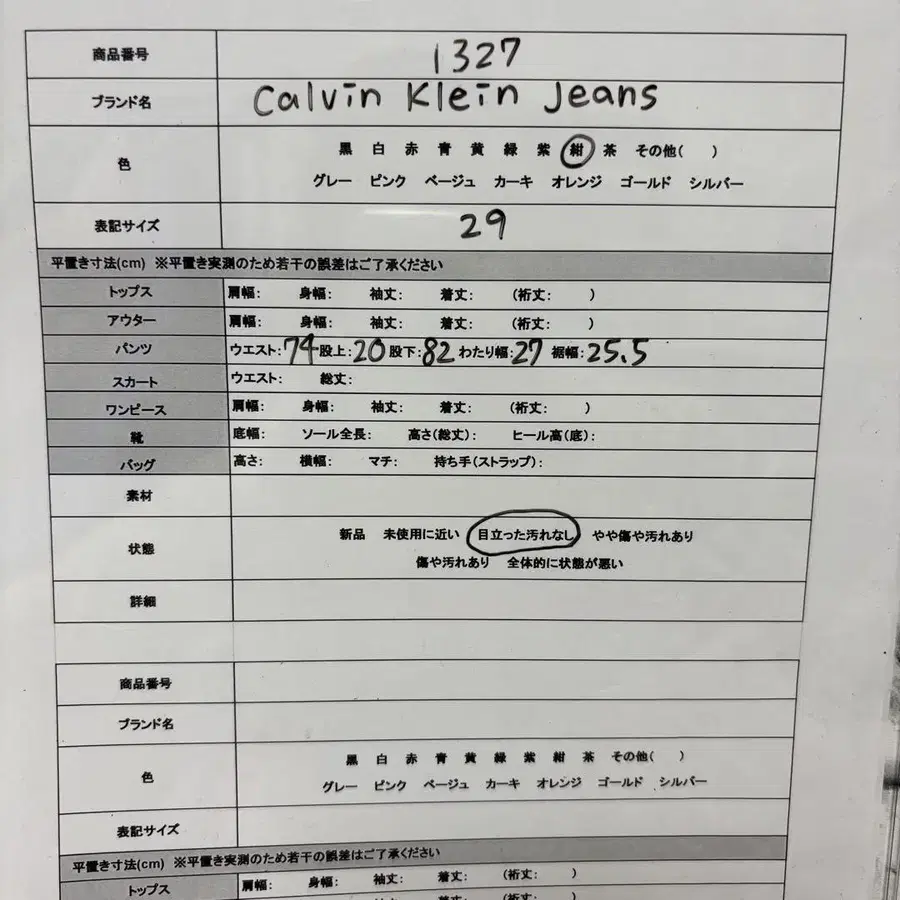 商品番号 1327
ブランド名 Calvin Klein Jeans
色 黒 白 赤 青 黄 緑 紫 紺 茶 その他( )
グレー ピンク ベージュ カーキ オレンジ ゴールド シルバー
表記サイズ 29
平置き寸法(cm) ※平置き実測のため若干の誤差はご了承ください
トップス 肩幅: 身幅: 袖丈: 着丈: (裄丈: )
アウター 肩幅: 身幅: 袖丈: 着丈: (裄丈: )
パンツ ウエスト:74 股上:20 股下:82 わたり幅:27 裾幅:25.5
スカート ウエスト: 総丈:
ワンピース 肩幅: 身幅: 袖丈: 着丈: (裄丈: )
靴 底幅: ソール全長: 高さ(総丈): ヒール高(底):
バッグ 高さ: 横幅: マチ: 持ち手(ストラップ):
素材
状態 新品 未使用に近い 目立った汚れなし やや傷や汚れあり
傷や汚れあり 全体的に状態が悪い
詳細
商品番号
ブランド名
色 黒 白 赤 青 黄 緑 紫 紺 茶 その他( )
グレー ピンク ベージュ カーキ オレンジ ゴールド シルバー
表記サイズ
平置き寸法(cm) ※平置き実測のため若干の誤差はご了承ください
トップス 肩幅: 身幅: 袖丈: 着丈: (裄丈: )